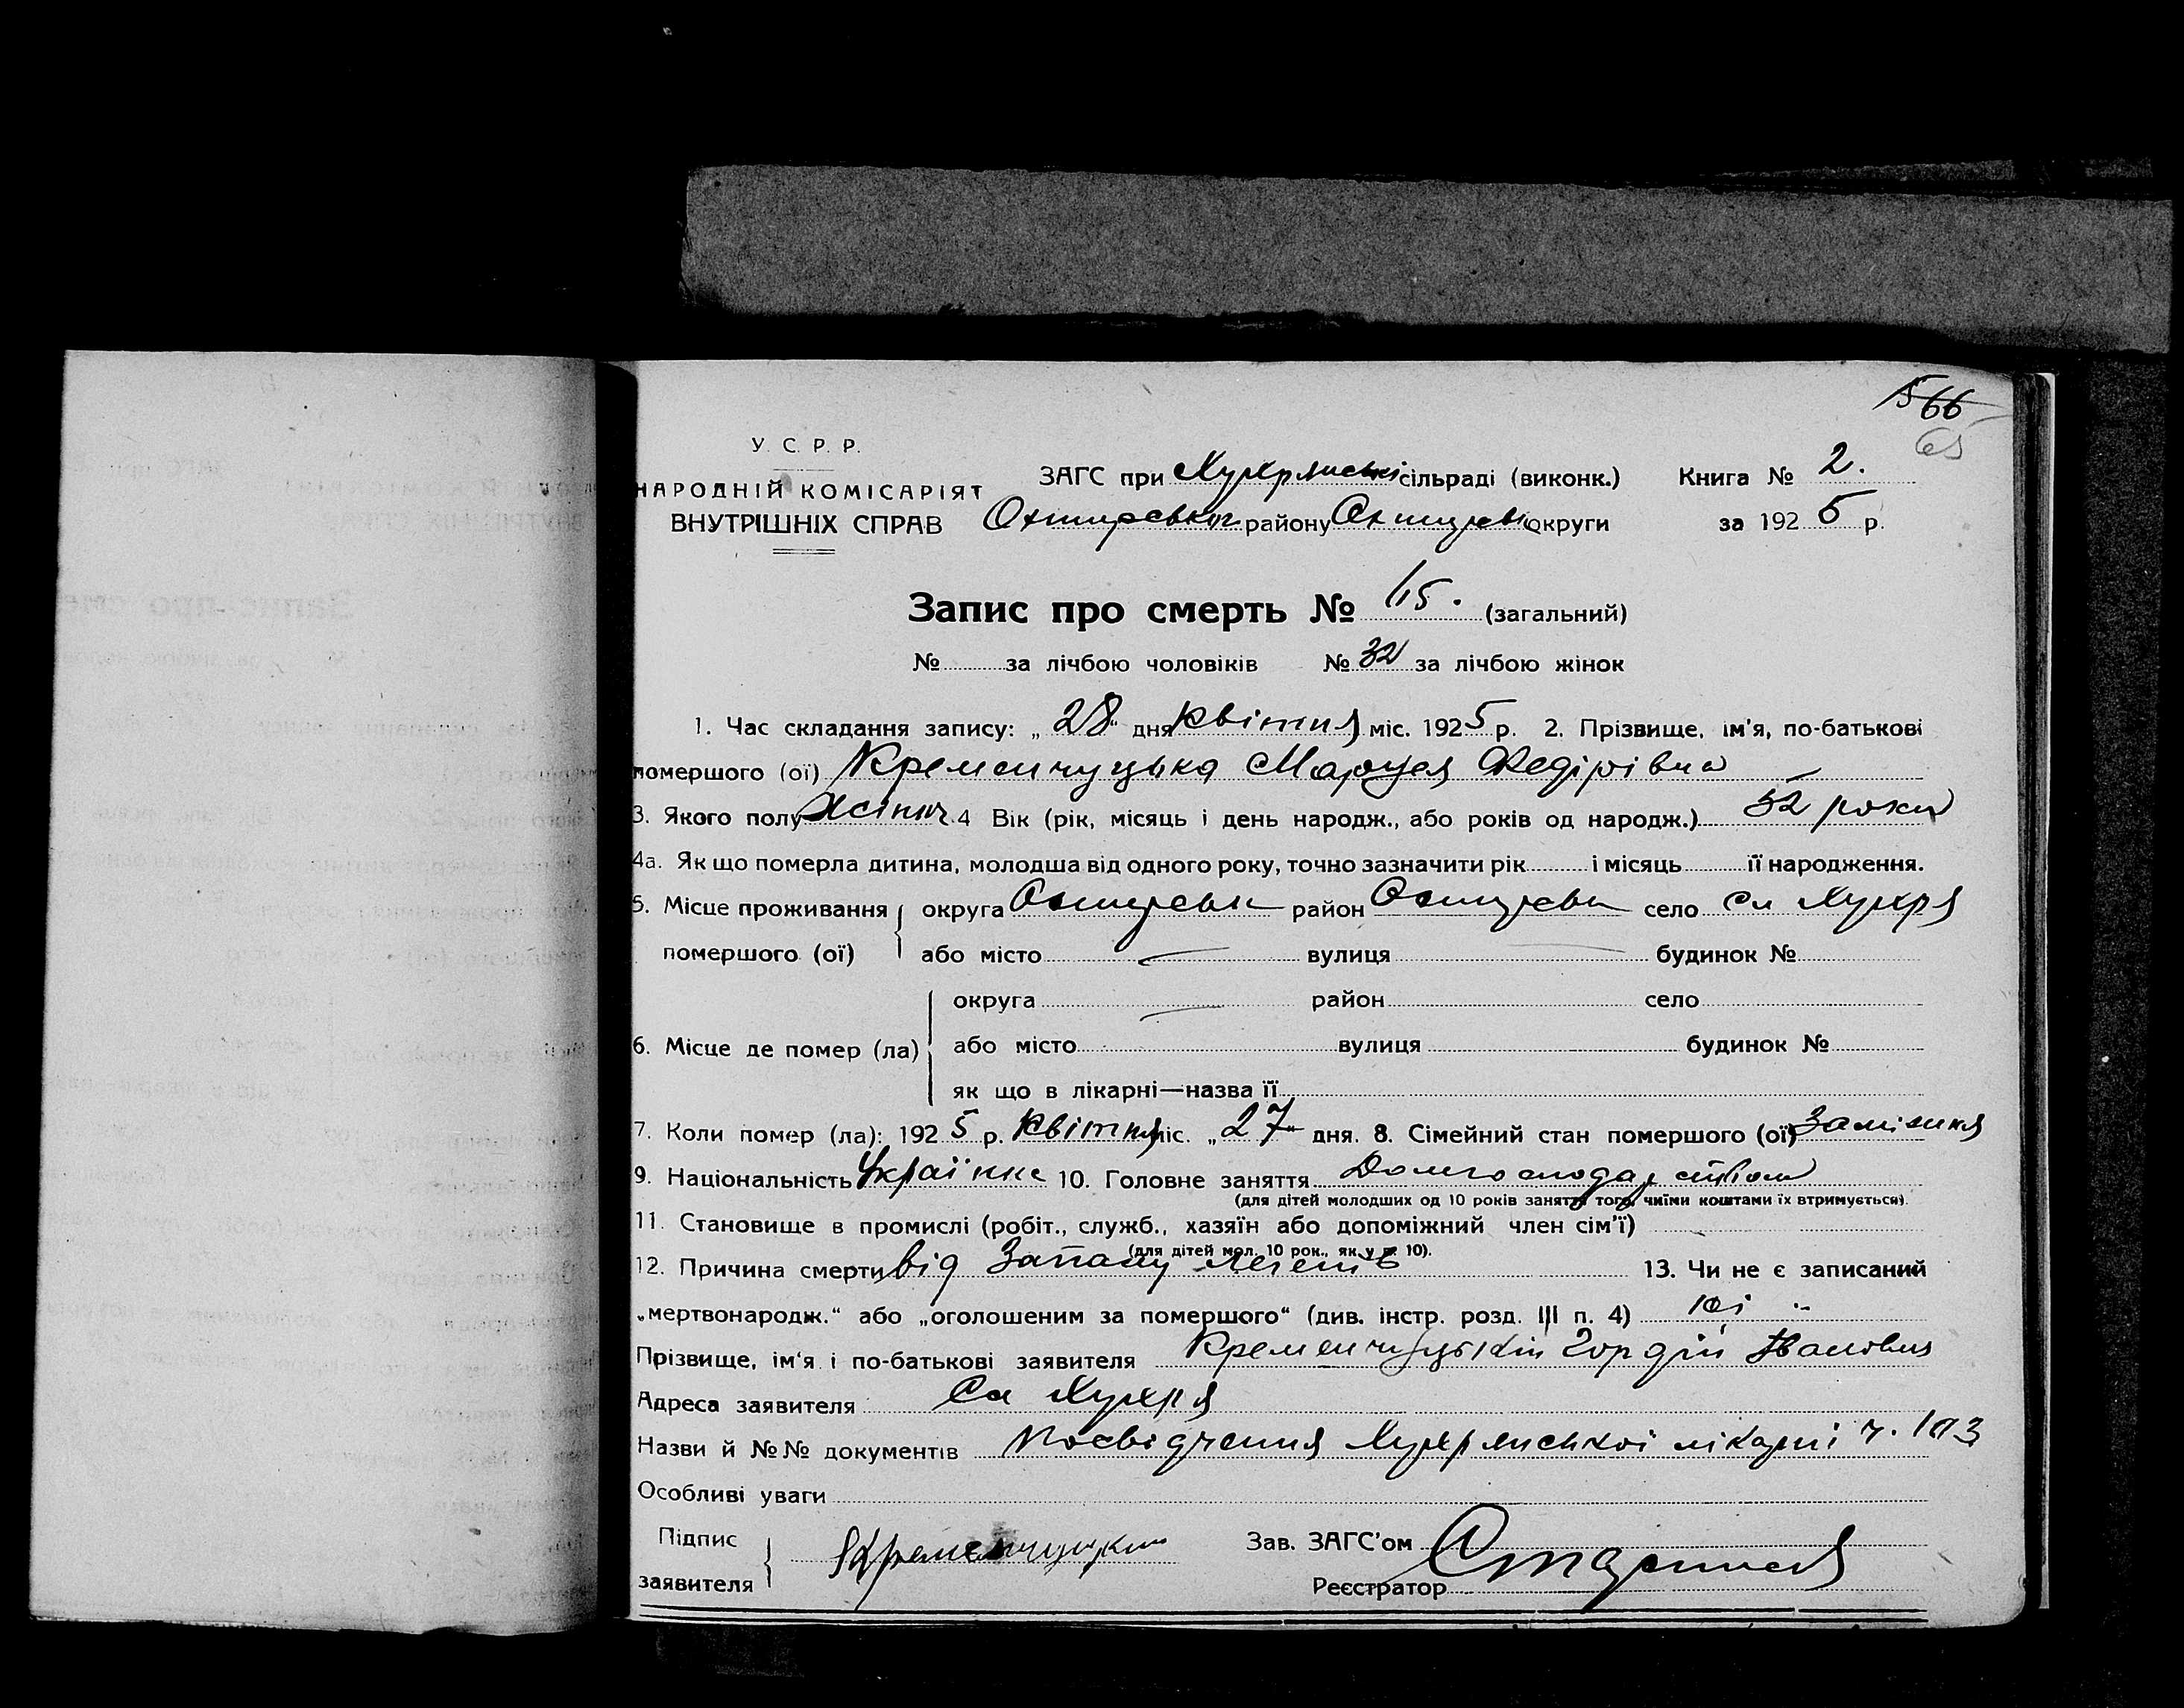 566
65
У. С. Р. Р.
НАРОДНІЙ КОМІСАРІЯТ
ВНУТРІШНІХ СПРАВ
ЗАГС при Хухрянські сільраді (виконк.) Книга № 2.
Охтирської району Охтирсько округи за 1925 р.
Запис про смерть № 115. (загальний)
№ за лічбою чоловіків № 32 за лічбою жінок
1. Час складання запису: „28“ дня квітня міс. 1925 р. 2. Прізвище, ім'я, по-батькові
помершого (ої) Кременчуцька Федірівна
3. Якого полу Жіноч. 4 Вік (рік, місяць і день народж., або років од народж.) 32 роки
4а. Як що померла дитина, молодша від одного року, точно зазначити рік і місяць її народження.
5. Місце проживання округа Охтирськ район Охтирськ село Сл Хухря
помершого (ої) або місто — вулиця — будинок №
округа — район село
6. Місце де помер (ла) або місто вулиця будинок №
як що в лікарні—назва її
7. Коли помер (ла): 1925 р. Квітня міс. „27“ дня. 8. Сімейний стан помершого (ої) Заміжня
9. Національність Українка 10. Головне заняття Домгосподарством
(для дітей молодших од 10 років заняття того, чиїми коштами їх втримується).
11. Становище в промислі (робіт., служб., хазяїн або допоміжний член сім'ї)
(для дітей мол. 10 рок., як у п. 10).
12. Причина смерти від Запалу легенів 13. Чи не є записаний
„мертвонародж.“ або „оголошеним за помершого“ (див. інстр. розд. III п. 4) ні
Прізвище, ім'я і по-батькові заявителя Кременчуцький Гордій Іванович
Адреса заявителя Сл Хухря
Назви й №№ документів Посвідчення Хухрянської лікарні ч. 103
Особливі уваги
Підпис
заявителя Кременчуцкий
Зав. ЗАГС'ом
Реєстратор